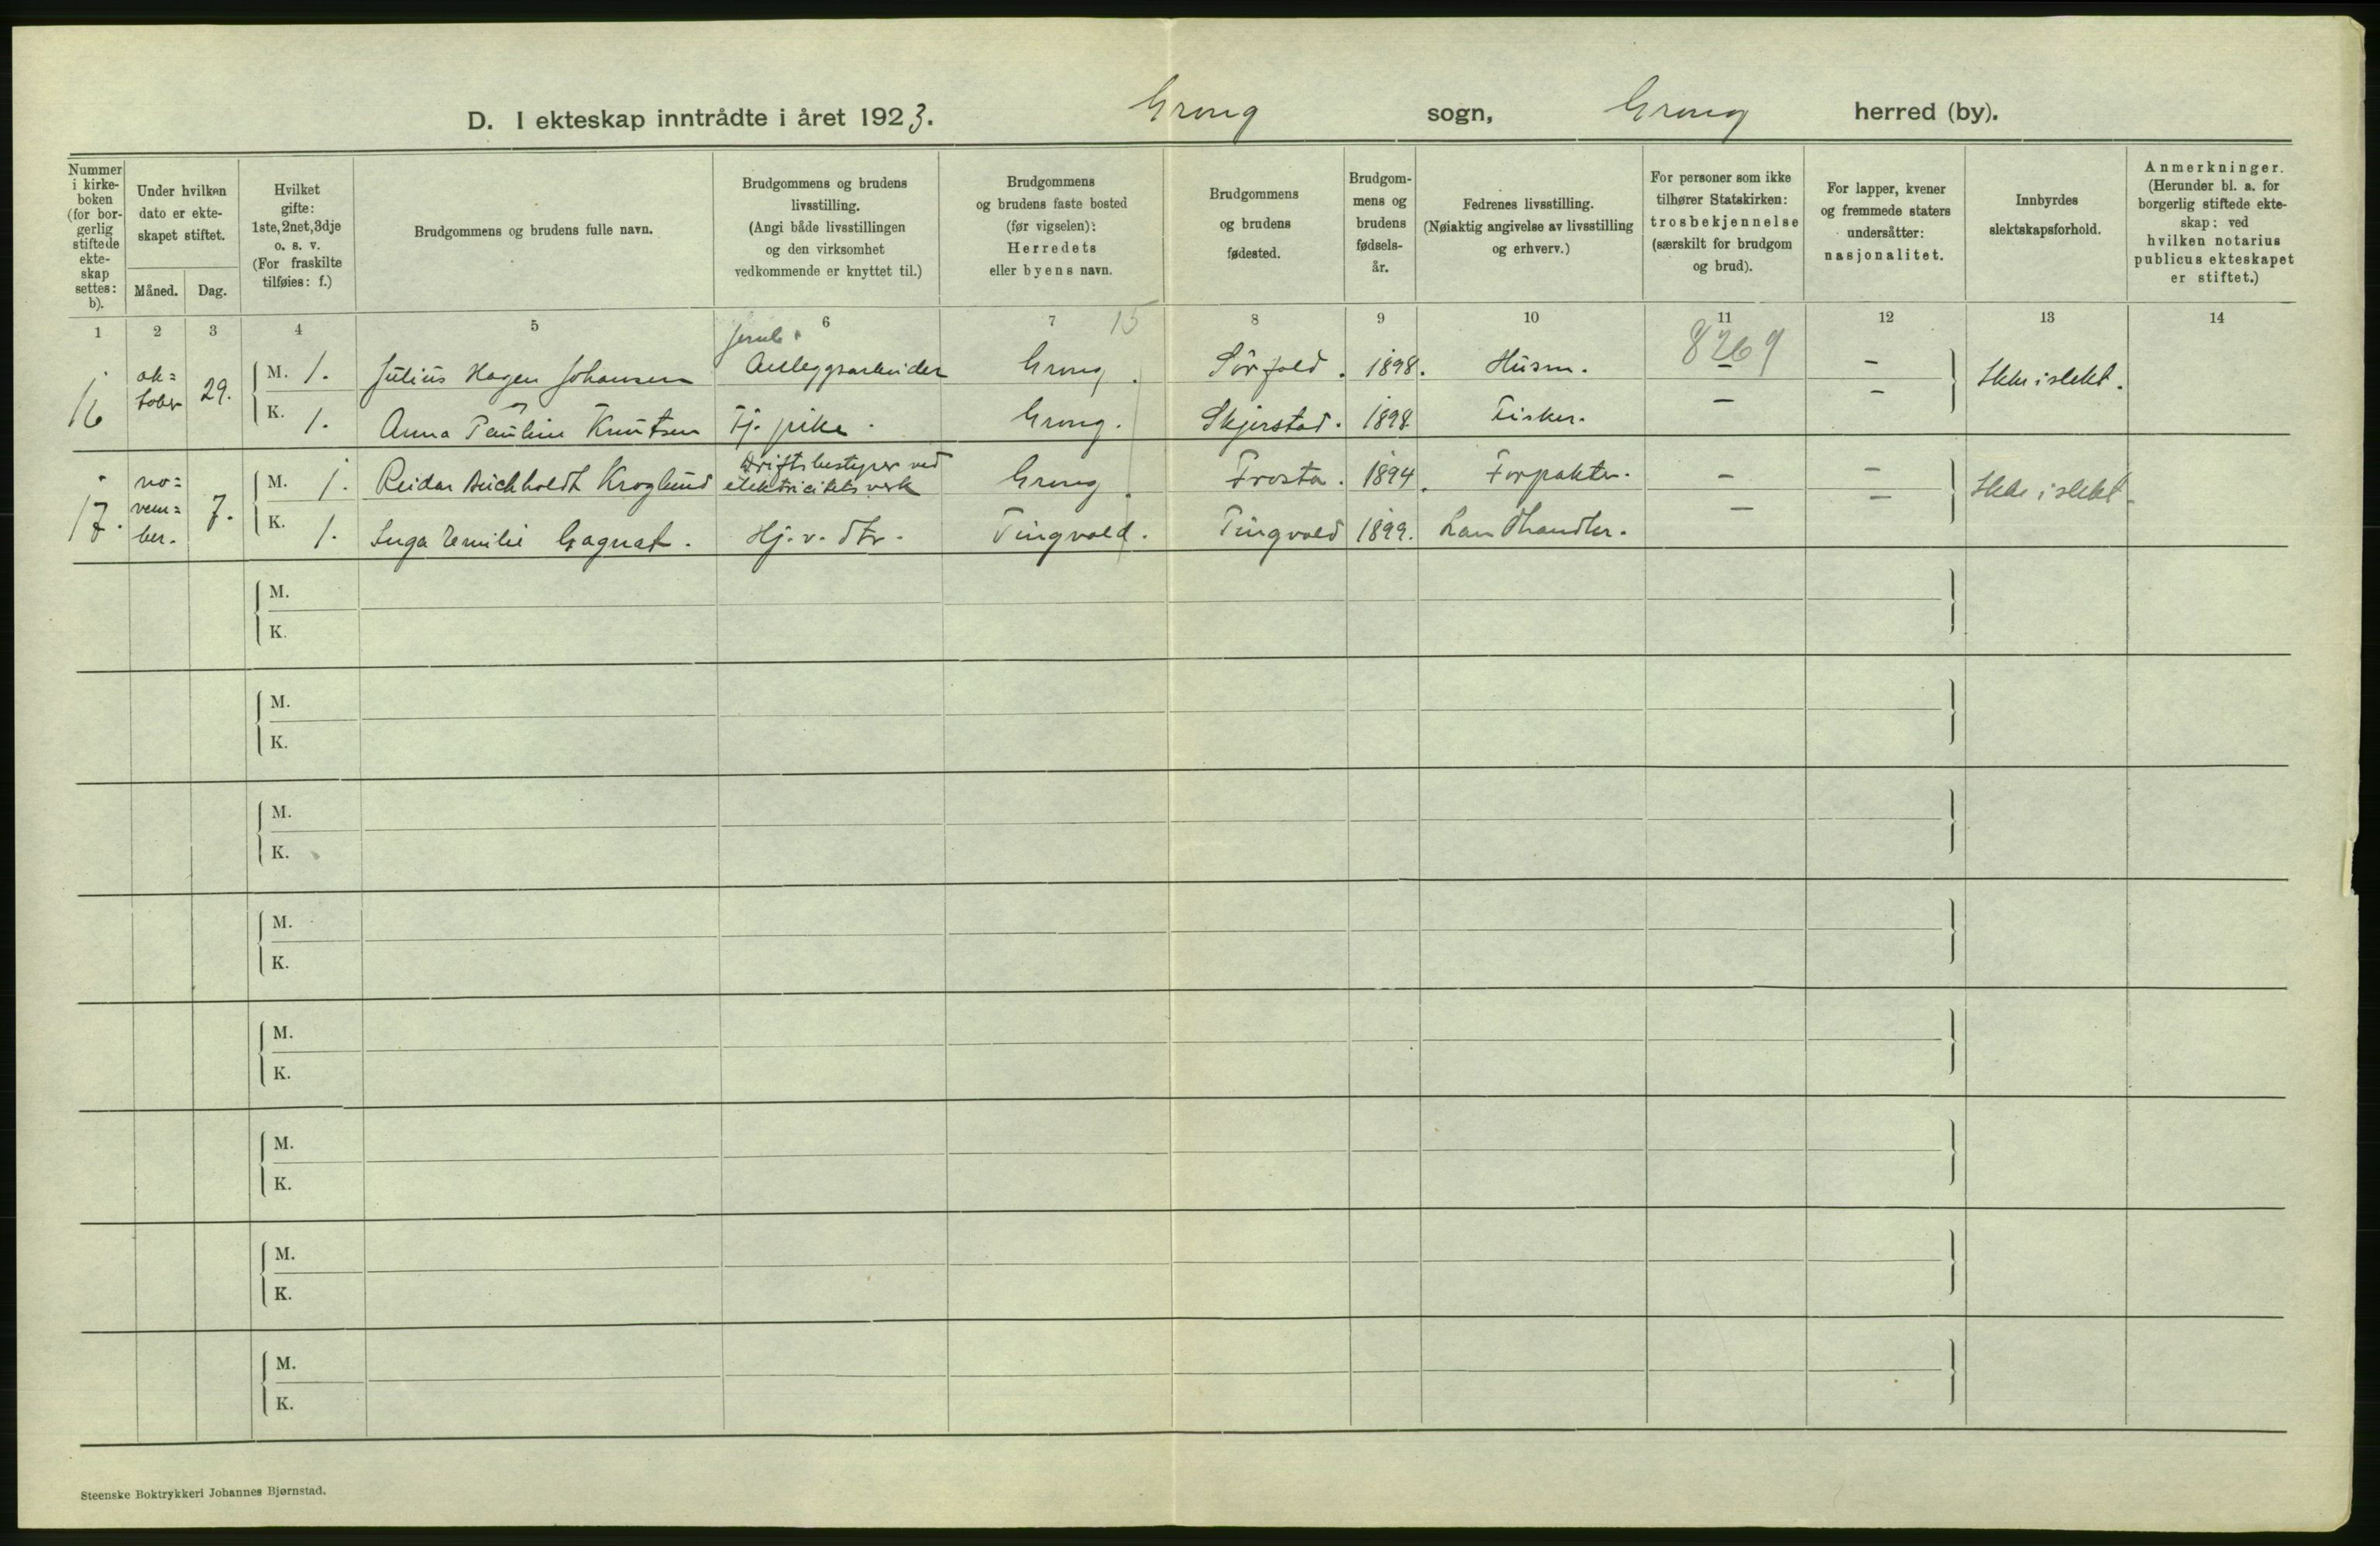 D. I ekteskap inntrådte i året 1923. Grong sogn, Grong herred (by).
Nummer i kirkeboken (for borgerlig stiftede ekteskap settes: b).
Under hvilken dato er ekteskapet stiftet.
Måned. Dag.
Hvilket gifte: 1ste, 2net, 3dje o. s. v. (For fraskilte tilføies: f.)
Brudgommens og brudens fulle navn.
Brudgommens og brudens livsstilling. (Angi både livsstillingen og den virksomhet vedkommende er knyttet til.)
Brudgommens og brudens faste bosted (før vigselen): Herredets eller byens navn.
Brudgommens og brudens fødested.
Brudgommens og brudens fødselsår.
Fedrenes livsstilling. (Nøiaktig angivelse av livsstilling og erhverv.)
For personer som ikke tilhører Statskirken: trosbekjennelse (særskilt for brudgom og brud).
For lapper, kvener og fremmede staters undersåtter: nasjonalitet.
Innbyrdes slektskapsforhold.
Anmerkninger. (Herunder bl. a. for borgerlig stiftede ekteskap: ved hvilken notarius publicus ekteskapet er stiftet.)
1 2 3 4 5 6 7 8 9 10 11 12 13 14
15
8269
16 oktober 29. M. 1. Julius Hagen Johansen Anleggsarbeider Grong. Sörfold. 1898. Husm. – – Ikke i slekt.
K. 1. Anna Pauline Knutsen Tj. pike. Grong. Skjerstad. 1898. Fisker. – –
17. november. 7. M. 1. Reidar Buchholdt Kroglund Driftsbestyrer ved elektricitetsverk Grong. Frosta. 1894. Forpakter. – – Ikke i slekt.
K. 1. Inga Emilie Gagnat. Hj. v. dtr. Tingvold. Tingvold 1899. Landhandler. – –
M.
K.
M.
K.
M.
K.
M.
K.
M.
K.
M.
K.
M.
K.
M.
K.
Steenske Boktrykkeri Johannes Bjørnstad.